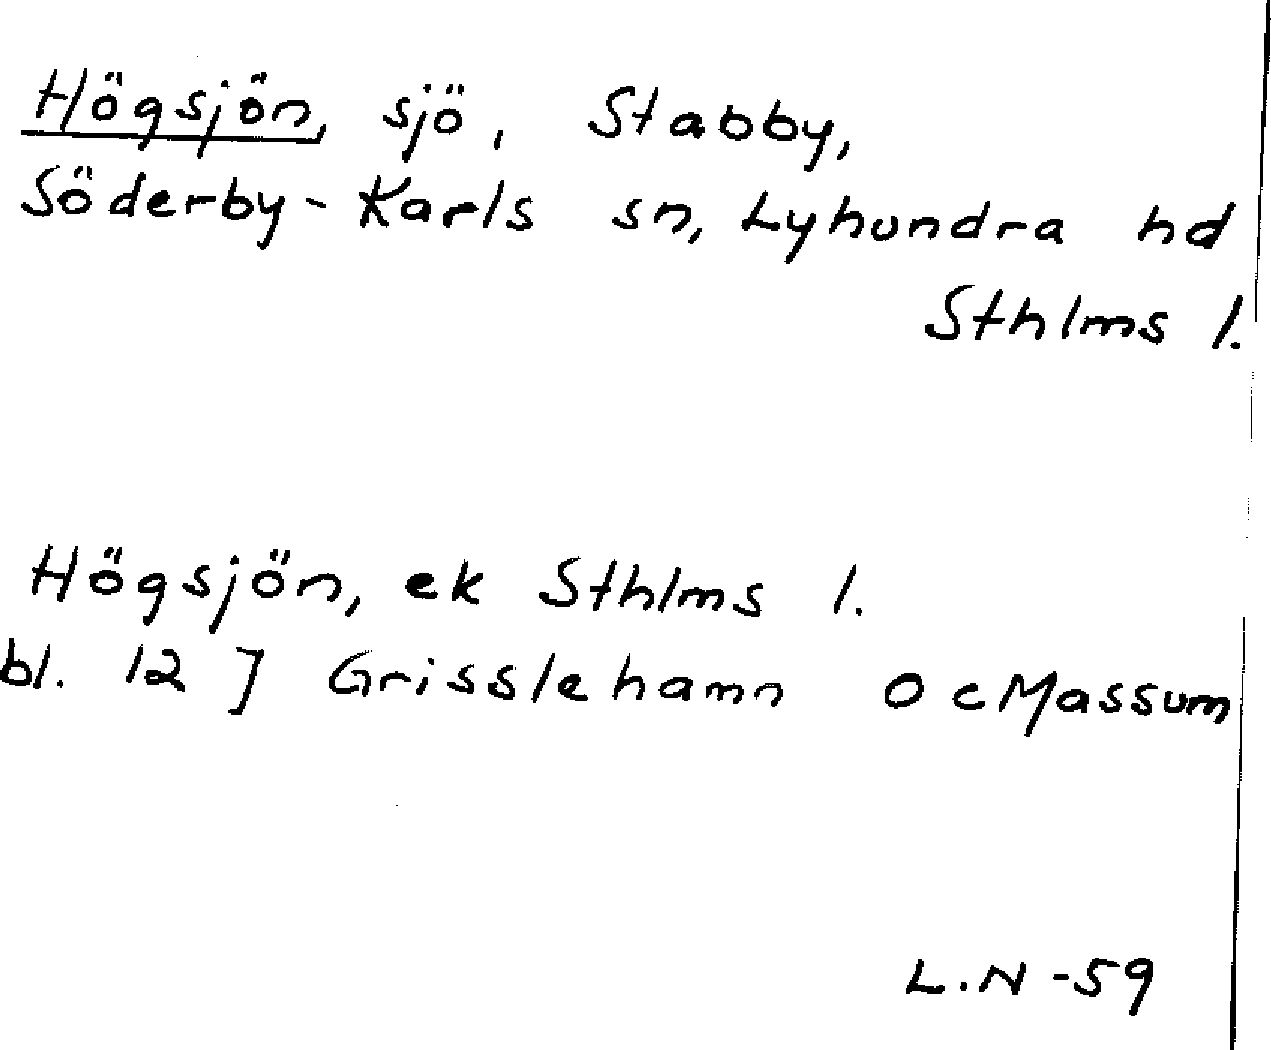 Högsjön, sjö, Stabby,
Söderby-Karls sn, Lyhundra hd
Sthlms l.
Högsjön, ek Sthlms l.
bl. 12 J Grisslehamn O c Massum
L.N -59